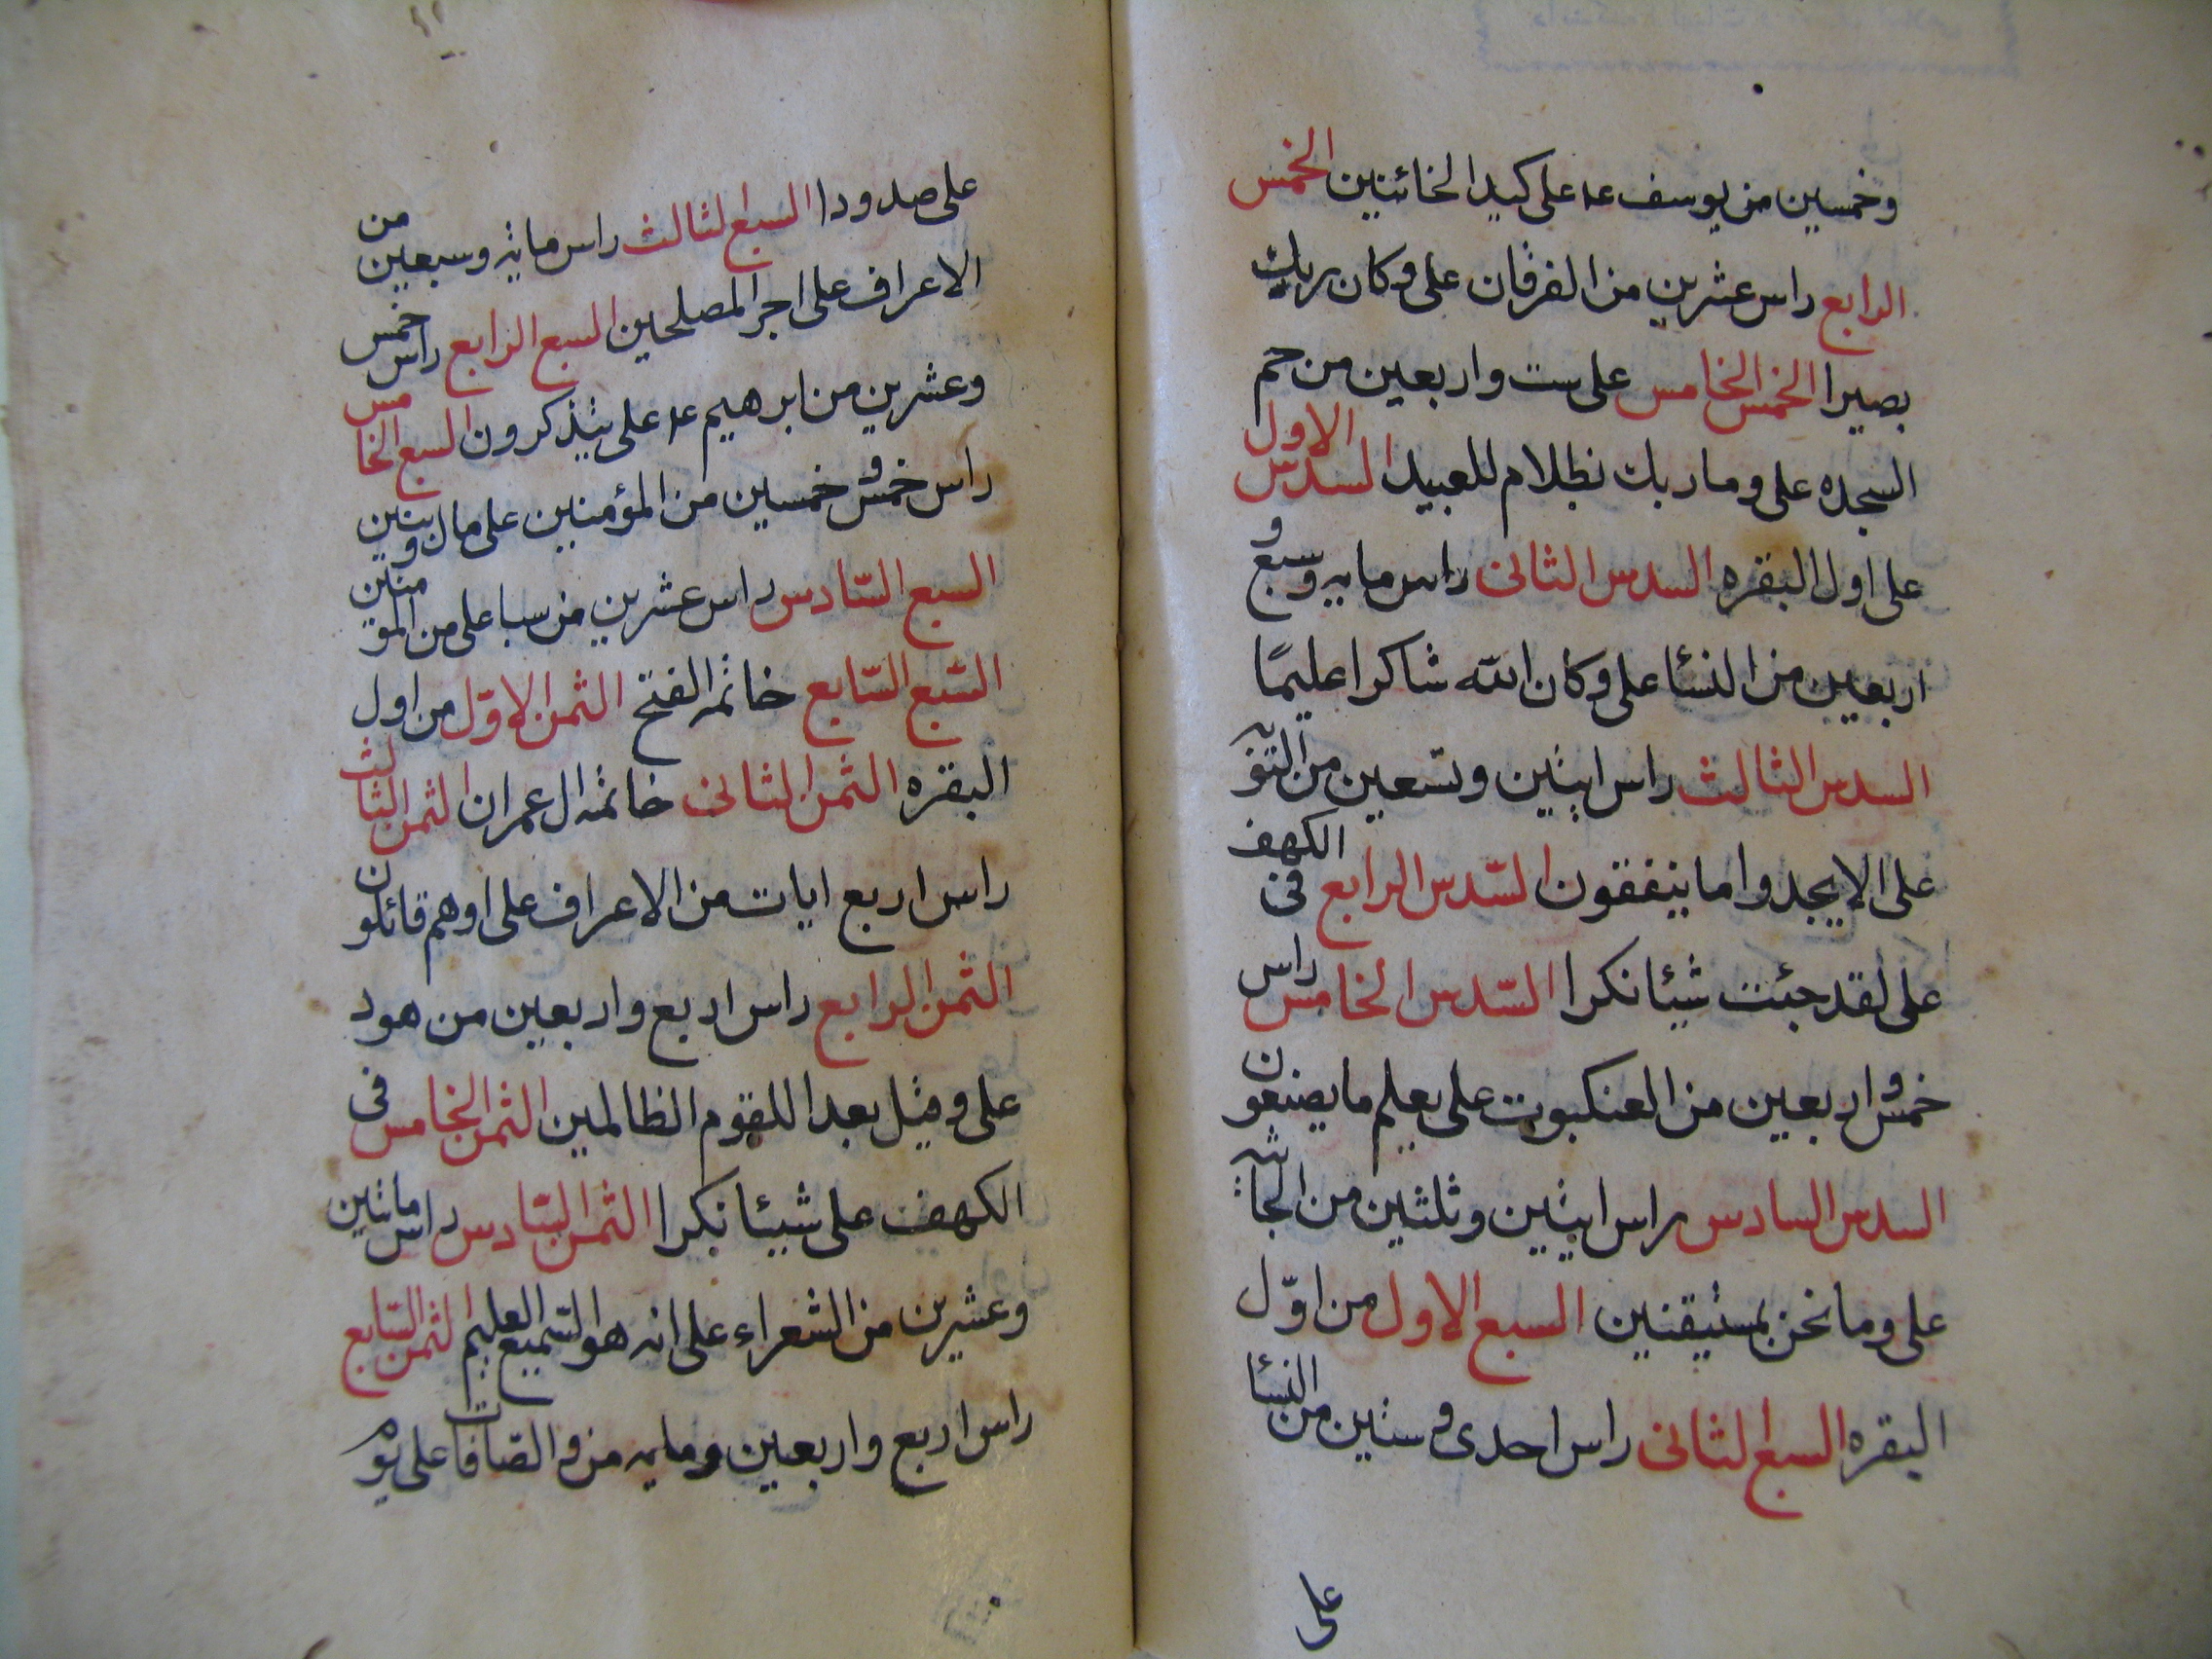 وخمسين من يوسف عد على كيد الخائنين الخمس
الرابع راس عشرين من الفرقان على وكان ربك
بصيرا الخمس الخامس على ست واربعين من حم
السجده على وما ربك بظلام للعبيد السدس الاول
على اول البقره السدس الثانى راس مايه وسبع و
اربعين من النسا على وكان الله شاكرا عليمًا
السدس الثالث راس اثنين وتسعين من التوبه
على الا يجدوا ما ينفقون السّدس الرابع فى الكهف
على لقد جئت شيئا نكرا السّدس الخامس راس
خمس و اربعين من العنكبوت على يعلم ما يصنعون
السدس السادس راس اثنين وثلثين من الجاثيه
على وما نحن بمستيقنين السبع الاول من اوّل
البقره السبع الثانى راس احدى وستين من النسا
على
على صدودا السبع الثالث راس مايه وسبعين من
الاعراف على اجر المصلحين السبع الرابع راس خمس
وعشرين من ابرهيم عد على يتذكرون السبع الخامس
راس خمس و خمسين من المؤمنين على مال وبنين
السبع السّادس راس عشرين من سبا على من المؤمنين
السّبع السّابع خاتمه الفتح الثمن الاوّل من اول
البقره الثمن الثانى خاتمه ال عمران الثمن الثالث
راس اربع ايات من الاعراف على اوهم قائلون
الثمن الرابع راس اربع واربعين من هود
على وقيل بعدا للقوم الظالمين الثمن الخامس فى
الكهف على شيئا نكرا الثمن السّادس راس مائتين
وعشرين من الشعراء على انه هو السّميع العليم الثمن السّابع
راس اربع واربعين ومايه من والصّافات على يوم